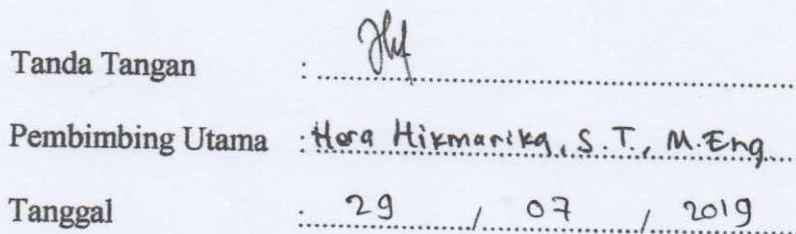 Tanda Tangan :
Pembimbing Utama : Hera Hikmarika, S.T., M.Eng
Tanggal : 29 / 07 / 2019